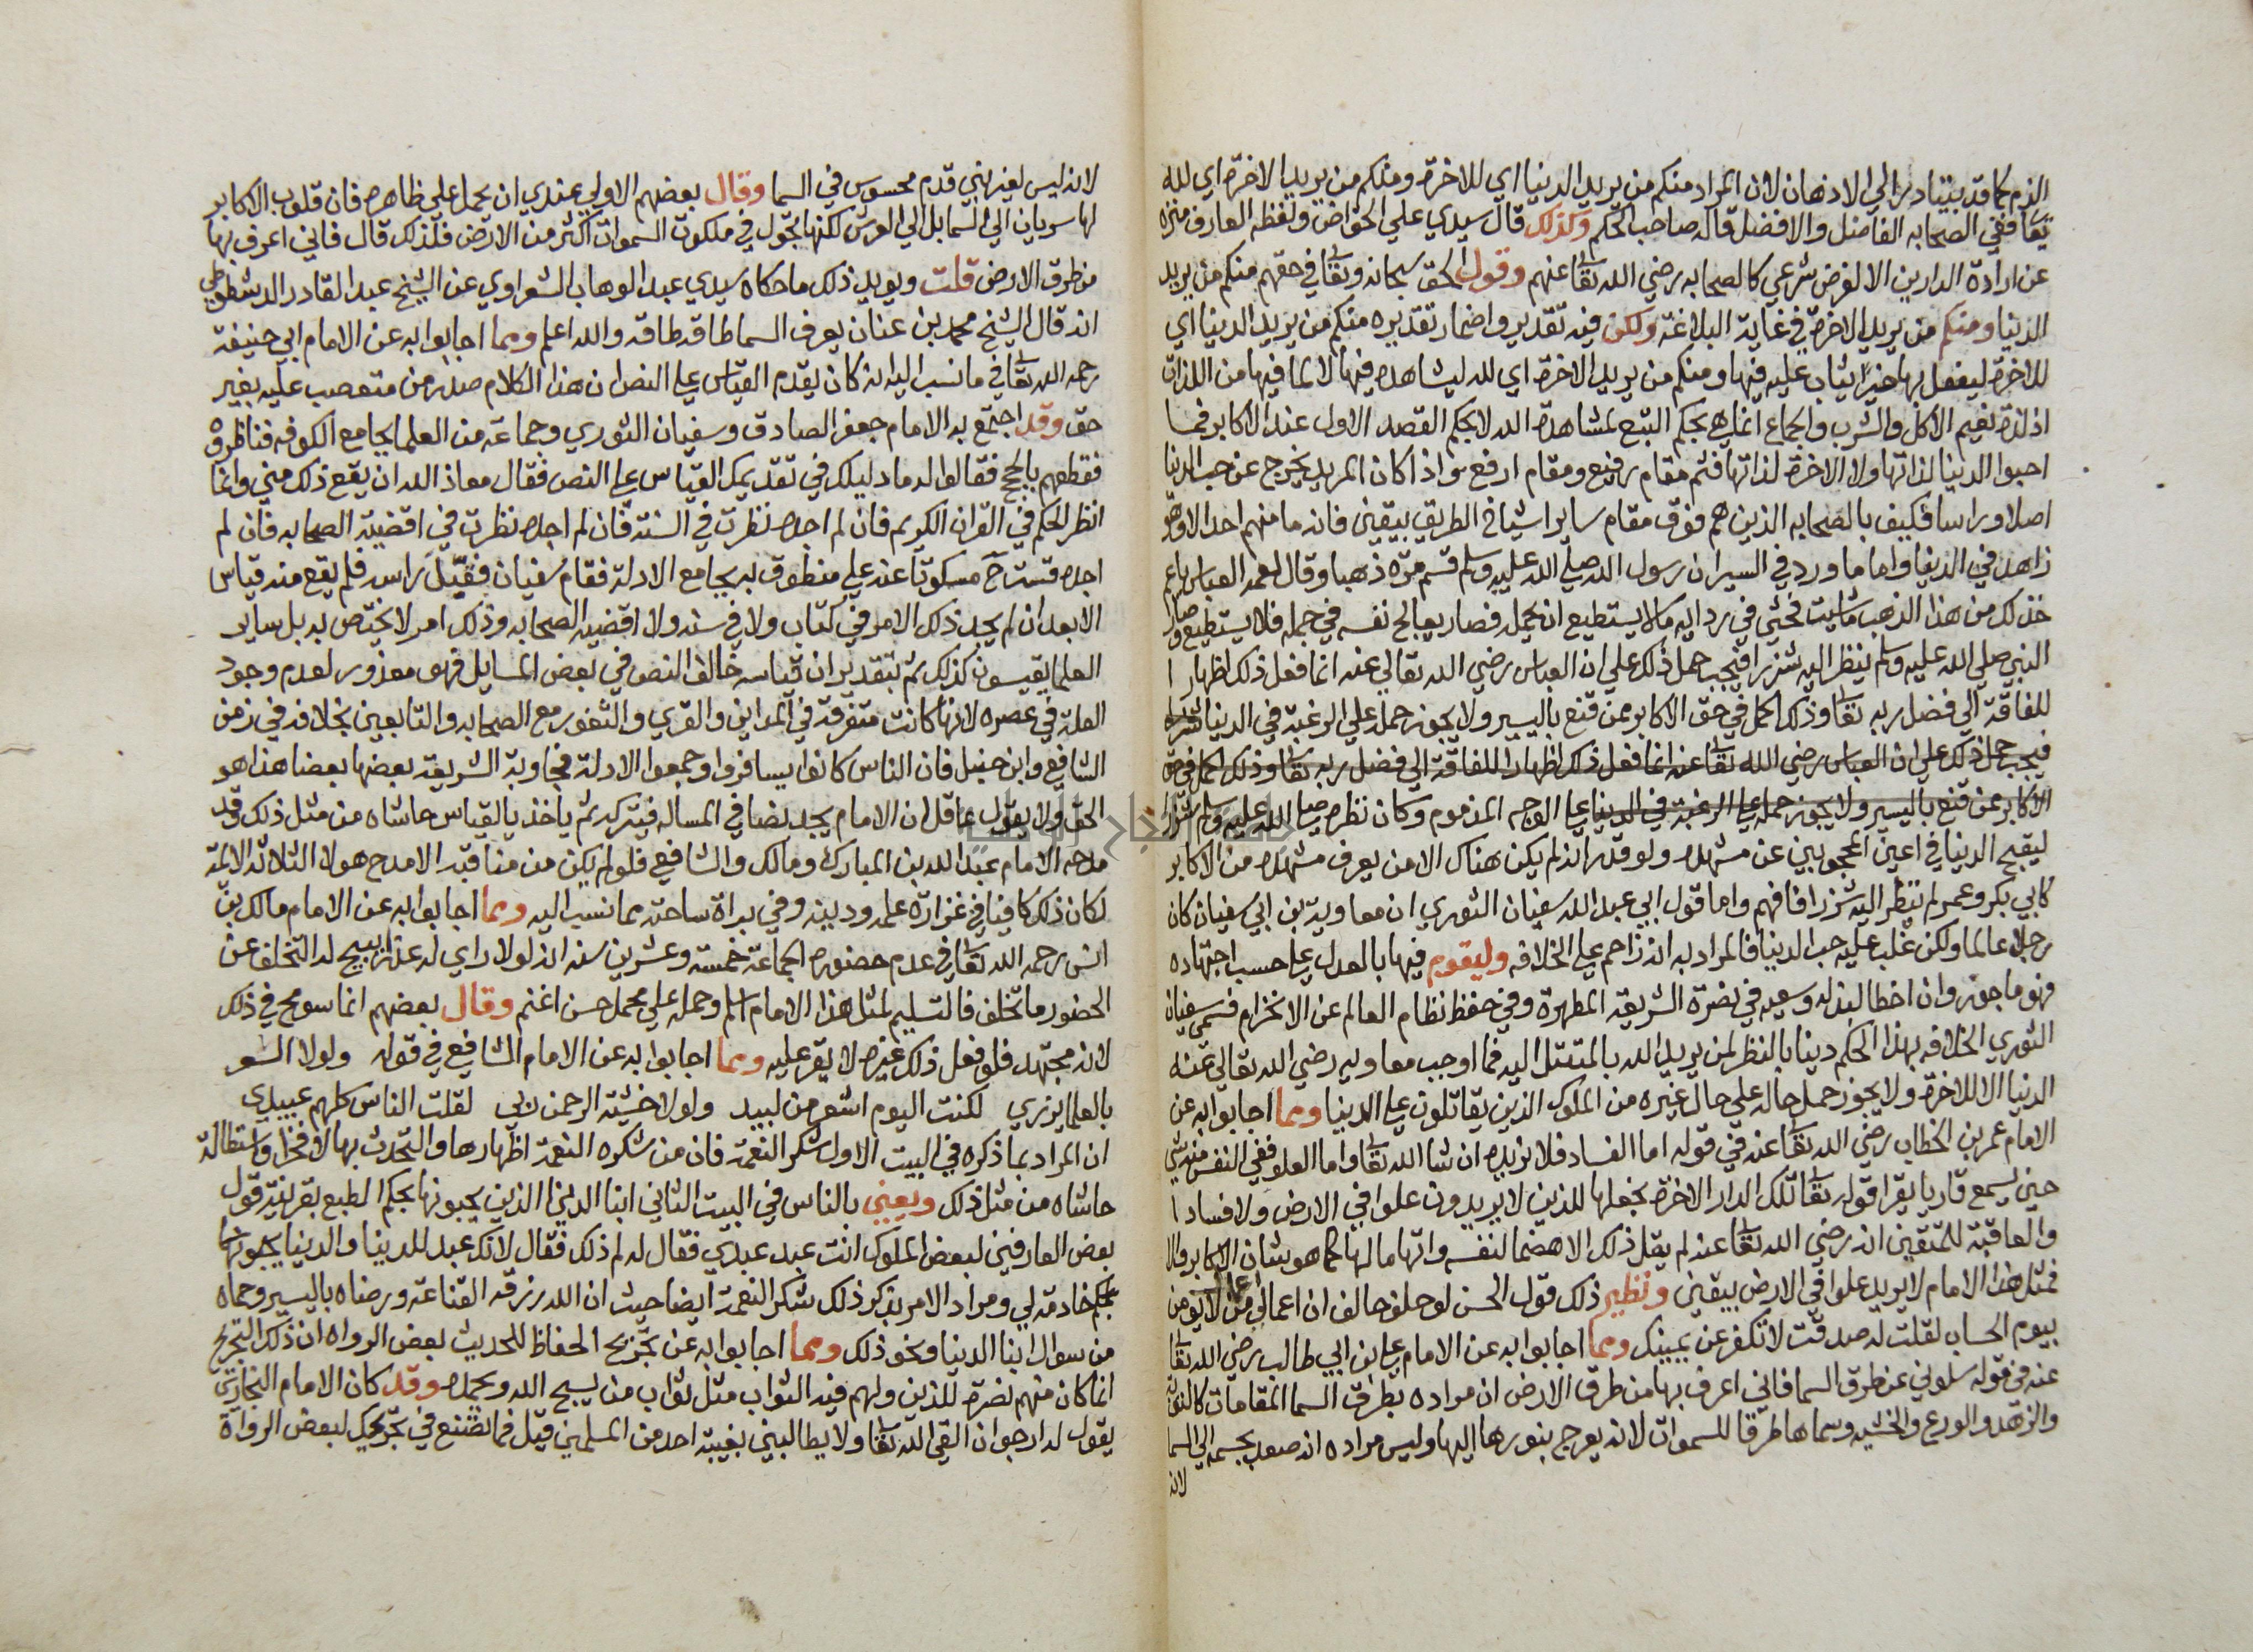 الذم كما قد يتبادر الي الاذهان لان المراد منكم من يريد الدنيا اي للاخرة ومنكم من يريد الاخرة اي لله
تعا ففي الصحابه الفاضل والافضل قاله صاحب الحكم وكذلك قال سيدي علي الخواص ولفظه العارف منزه
عن ارادة الدارين الا لغرض شرعي كالصحابه رضي الله تعا عنهم وقول الحق سبحانه وتعا في حقهم منكم من يريد
الدنيا ومنكم من يريد الاخرة في غاية البلاغة ولكن فيه تقدير واضمار تقديره منكم من يريد الدنيا اي
للاخرة ليفعل بها خيرا يثاب عليه فيها ومنكم من يريد الاخرة اي لله ليشاهده فيها لا لما فيها من اللذات
اذ لذة نعيم الاكل والشرب والجماع انما هي بحكم التبع لمشاهدة الله لا بحكم القصد الاول عند الاكابر فما
احبوا الدنيا لذاتها ولا الاخرة لذاتها فثم مقام رفيع ومقام ارفع واذا كان المريد يخرج عن حب الدنيا
اصلا وراسا فكيف بالصحابه الذين هم فوق مقام ساير اشياخ الطريق بيقين فانه ما منهم احد الا وهو
زاهد في الدنيا واما ما ورد في السير ان رسول الله صلي الله عليه وسلم قسم مرة ذهبا وقال لعمه العباس يا عم
خذ لك من هذا الذهب ماشيت فحثي في ردايه ما لا يستطيع ان يحمله فصار يعالج نفسه في حمله فلا يستطيع وصار
النبي صلي الله عليه وسلم ينظر اليه شزرا فيجب حمل ذلك علي ان العباس رضي الله تعالي عنه انما فعل ذلك اظهارا
للفاقة الي فضل ربه تعا وذلك اكمل في حق الاكابر ممن قنع باليسير ولا يجوز حمله علي الرغبة في الدنيا
فيجب حمل ذلك علي ان العباس رضي الله تعا عنه انما فعل ذلك اظهارا للفاقة الي فضل ربه تعا وذلك اكمل في حق
الاكابر ممن قنع باليسير ولا يجوز حمله علي الرغبة في الدنيا علي الوجه المذموم وكان نظره صلي الله عليه وسلم شزرا
ليقبح الدنيا في اعين المحجوبين عن مشهده ولو قدر انه لم يكن هناك الا من يعرف مشهده من الاكابر
كابي بكر وعمر لم ينظر اليه شزرا فافهم واما قول ابي عبد الله سفيان الثوري ان معاوية بن ابي سفيان كان
رجلا عالما ولكن غلب عليه حب الدنيا فالمراد به انه زاحم علي الخلافه وليقوم فيها بالعدل علي حسب اجتهاده
فهو ماجور وان اخطا لبذله وسعه في نصرة الشريعة المطهرة وفي حفظ نظام العالم عن الانخرام فسمي سفيان
الثوري الخلافه بهذا الحكم دينا بالنظر لمن يريد الله بالمتثل اليه فما اوجب معاويه رضي الله تعالي عنه
الدنيا الا للاخرة ولا يجوز حمل حاله علي حال غيره من الملوك الذين يقاتلون علي الدنيا ومما اجابوا به عن
الامام عمر بن الخطاب رضي الله تعا عنه في قوله اما الفساد فلا نريده ان شا الله تعا واما العلو ففي النفس منه شي
حين سمع قاريا يقرا قوله تعا تلك الدار الاخرة نجعلها للذين لا يريدون علوا في الارض ولا فسادا
والعاقبة للمتقين انه رضي الله تعا عنه لم يقل ذلك الا هضما لنفسه واتهاما لها كما هو شان الاكابر والا
فمثل هذا الامام لا يريد علوا في الارض بيقين ونظير ذلك قول الحسن لو حلف حالف ان اعمالي اعمال من لا يومن
بيوم الحساب لقلت له صدقت لا تكفر عن يمينك ومما اجابوا به عن الامام علي بن ابي طالب رضي الله تعا
عنه في قوله سلوني عن طرق السما فاني اعرف بها من طرق الارض ان مراده بطرق السما المقامات كالتوبة
والزهد والورع والخشيه وسماها طرقا للسموات لانه يعرج بنورها اليها وليس مراده انه صعد بجسمه الي السما
لانه
لانه ليس لغير نبي قدم محسوس في السما وقال بعضهم الاولي عندي ان يحمل علي ظاهره فان قلوب الاكابر
لها سريان الي السما بل الي العرش لكنها تجول في ملكوت السموات اكثر من الارض فلذلك قال فاني اعرف بها
من طرق الارض قلت ويويد ذلك ما حكاه سيدي عبد الوهاب الشعراوي عن الشيخ عبد القادر الدشطوطي
انه قال الشيخ محمد بن عنان يعرف السما طاقه طاقه والله اعلم ومما اجابوا به عن الامام ابي حنيفة
رحمه الله تعا في ما نسب اليه انه كان يقدم القياس علي النص ان هذا الكلام صدر من متعصب عليه بغير
حق وقد اجتمع به الامام جعفر الصادق وسفيان الثوري وجماعة من العلما بجامع الكوفه فناظروه
فقطعهم بالحجج فقالوا له ما دليلك في تقديمك القياس علي النص فقال معاذ الله ان يقع ذلك مني وانما
انظر الحكم في القران الكريم فان لم اجده نظرت في السنة فان لم اجده نظرت في اقضية الصحابه فان لم
اجده قست ح مسكوتا عنه علي منطوق به بجامع الادلة فقام سفيان فقبل راسه فلم يقع منه قياس
الا بعد ان لم يجد ذلك الامر في كتاب ولا في سنه ولا اقضية الصحابه وذلك امر لا يختص به بل ساير
العلما يقيسون كذلك ثم بتقدير ان قياسه خالف النص في بعض المسايل فهو معذور لعدم وجود
العلة في عصره لانها كانت متفرقة في المداين والقري والثغور مع الصحابه والتابعين بخلافه في زمن
الشافعي وابن حنبل فان الناس كانوا يسافروا وجمعوا الادلة فجاوبة الشريعة بعضها بعضا هذا هو
الحق ولا يقول عاقل ان الامام يجد نصا في المساله فيتركه ثم ياخذ بالقياس حاشاه من مثل ذلك وقد
مدحه الامام عبد الله بن المبارك ومالك والشافعي فلو لم يكن من مناقبه الا مدح هولا الثلاثة الايمة
لكان ذلك كافيا في غزارة علمه ودينه وفي براة ساحته مما نسب اليه ومما اجابوا به عن الامام مالك بن
انس رحمه الله تعا في عدم حضوره الجماعة خمسة وعشرين سنه انه لولا راي له عذرا يبيح له التخلف عن
الحضور ما تخلف فالتسليم لمثل هذا الامام اسلم وحمله علي محمل حسن اغنم وقال بعضهم انما سومح في ذلك
لانه مجتهد فلو فعل ذلك غيره لا يقر عليه ومما اجابوا به عن الامام الشافعي في قوله ولولا الشعر
بالعلما يزري لكنت اليوم اشعر من لبيد ولولا خشية الرحمن ربي لقلت الناس كلهم عبيدي
ان المراد بما ذكره في البيت الاول شكر النعمة فان من شكره النعمة اظهارها والتحدث بها لا فخرا واستطالة
حاشاه من مثل ذلك ويعني بالناس في البيت الثاني ابنا الدنيا الذين يحبونها بحكم الطبع بقرينة قول
بعض العارفين لبعض الملوك انت عبد عبدي فقال له لم ذلك فقال لانك عبد للدنيا والدنيا
بحكم خادمة لي ومراد الامر بذكر ذلك شكر النعمة ايضا حيث ان الله رزقه القناعة ورضاه باليسير وحماه
من سوال ابنا الدنيا ونحو ذلك ومما اجابوا به عن تجريح الحفاظ للحديث بعض الرواه ان ذلك التجريح
انما كان منهم نصرة للدين ولهم فيه الثواب مثل ثواب من يسبح الله ويحمده وقد كان الامام البخاري
يقول له ارجوا ان القي الله تعا ولا يطالبني بغيبة احد من المسلمين قيل فما تصنع في تجريحك لبعض الرواة